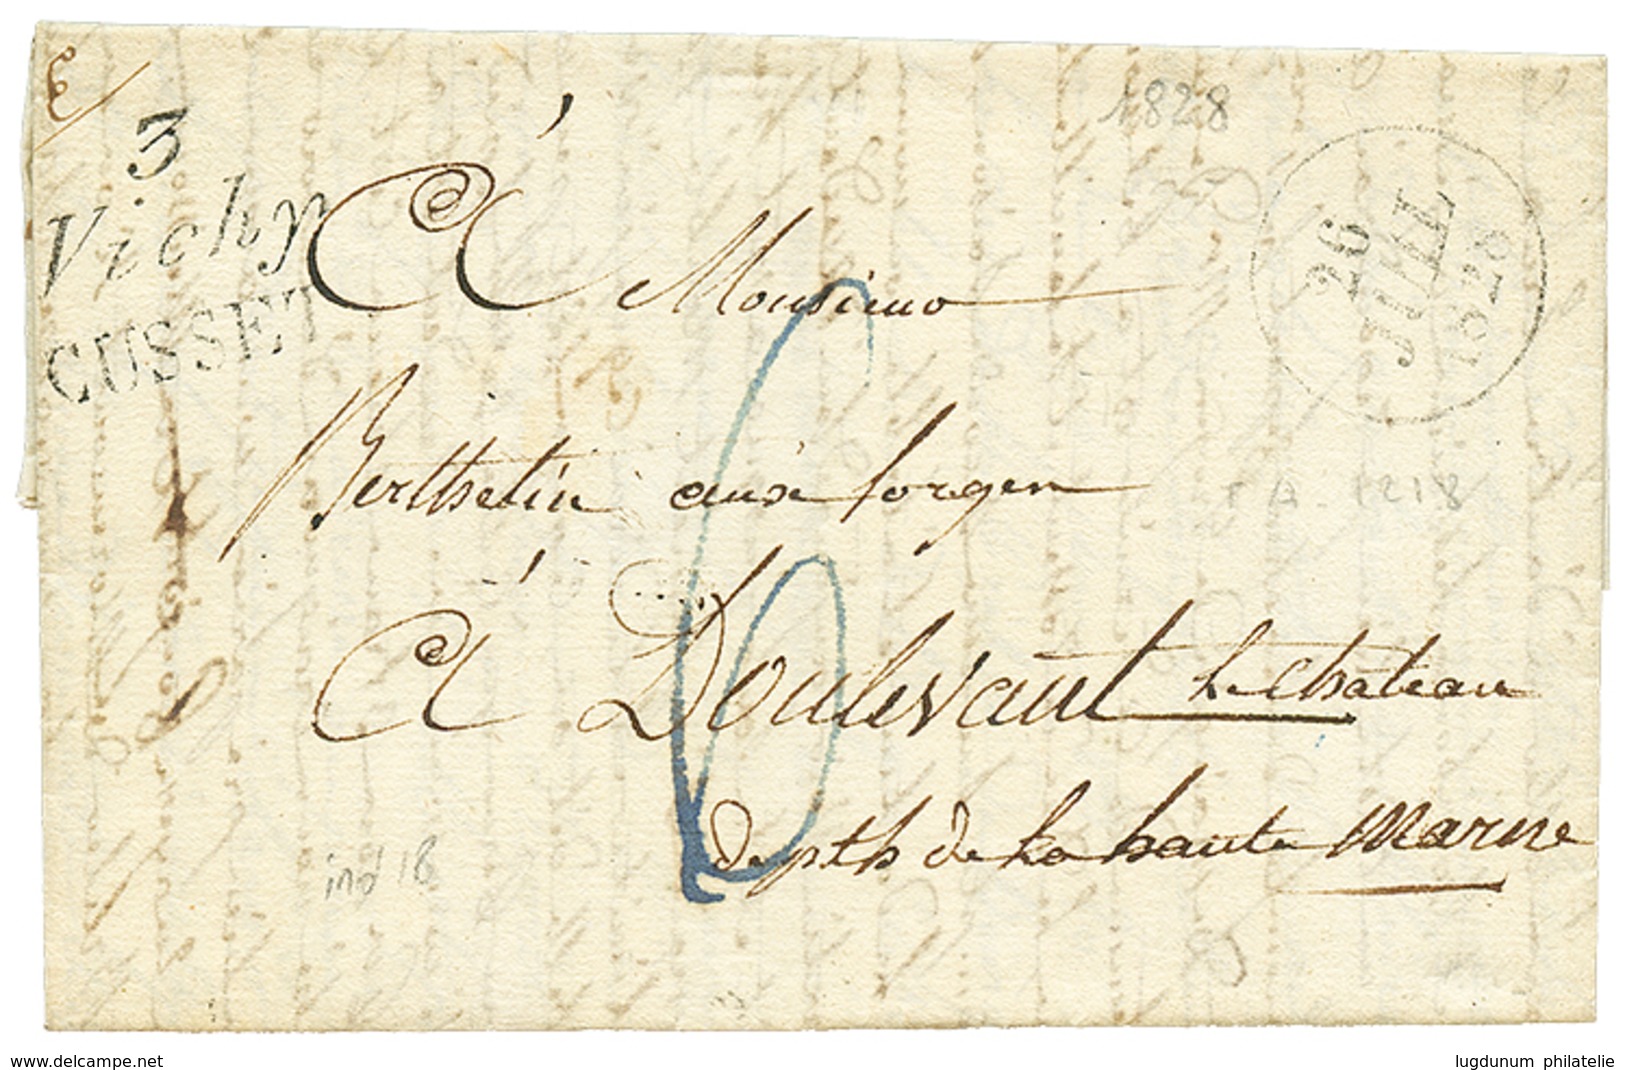 3
Vichy
CUSSET
1828
26
JUIL
1828
A Monsieur
Berthelin aux forges
A Doulevant le Chateau
depth de la haute Marne
6
ind 18
www.delcampe.net
lugdunum philatelie